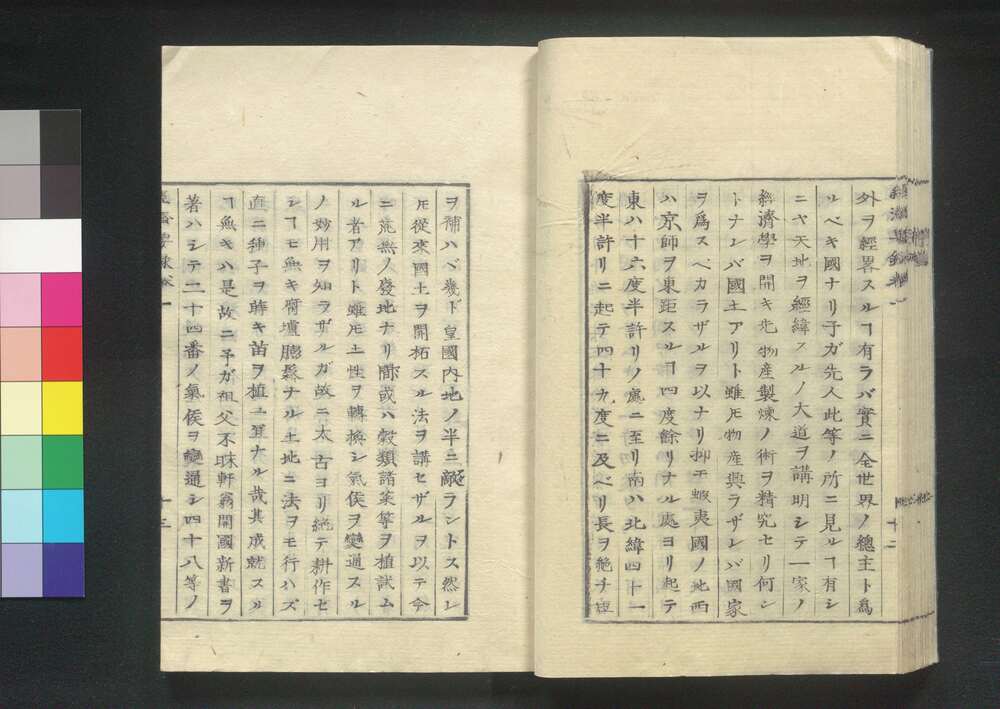 外ヲ經畧スルヿ有ラバ實ニ全世界ノ總主ト爲
ルベキ國ナリ予ガ先人此等ノ所ニ見ルヿ有シ
ニヤ天地ヲ經緯スルノ大道ヲ講明シテ一家ノ
經濟學ヲ開キ先物産製煉ノ術ヲ精究セリ何シ
トナレバ國土アリト雖𪜈物産興ラザレバ國家
ヲ爲スベカラザルヲ以ナリ抑平蝦夷國ノ地西
ハ京師ヲ東距スルヿ四度餘リナル處ヨリ起テ
東ハ十六度半許リノ處ニ至リ南ハ北緯四十一
度半許リニ起テ四十九度ニ及ベリ長ヲ絶チ
十二
ヲ補ハバ幾ド皇國内地ノ半ニ敵ラントス然レ
𪜈從來國土ヲ開拓スル法ヲ講セザルヲ以テ今
ニ荒蕪ノ廢地ナリ間或ハ穀類諸菜等ヲ植試ム
ル者アリト雖𪜈土性ヲ轉換シ氣侯ヲ變通スル
ノ妙用ヲ知ラザルガ故ニ太古ヨリ絶テ耕作セ
シヿモ無キ腐壚膨鬆ナル土地ニ法ヲモ行ハズ
直ニ種子ヲ蒔キ苗ヲ植ユ宜ナル哉其成就スル
ヿ無キハ是故ニ予ガ祖父不昧軒翁開國新書ヲ
著ハシテ二十四番ノ氣侯ヲ變通シ四十八等ノ
十三